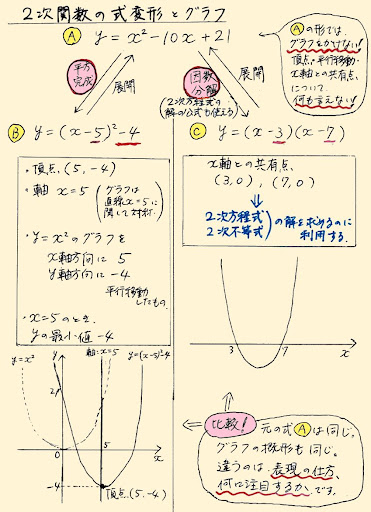 2次関数の式変形とグラフ
Ⓐ y=x²-10x+21
Ⓐの形では、
グラフをかけない!
頂点・平行移動・
x軸との共有点、
について
何も言えない!
平方
完成
展開
因数
分解
展開
(2次方程式の
解の公式も使える)
Ⓑ y=(x-5)²-4
・頂点(5,-4)
・軸 x=5
(グラフは
直線x=5に
関して対称。)
・y=x²のグラフを
x軸方向に 5
y軸方向に -4
平行移動
したもの。
・x=5のとき、
yの最小値-4
Ⓒ y=(x-3)(x-7)
x軸との共有点、
(3,0), (7,0)
2次方程式
2次不等式
の解を求めるのに
利用する。
3 7 x
y=x²
y
軸:x=5
y=(x-5)²-4
2
0
5
x
-4
頂点(5,-4)
比較!
元の式Ⓐは同じ。
グラフの概形も同じ。
違うのは、表現の仕方、
何に注目するか、です。